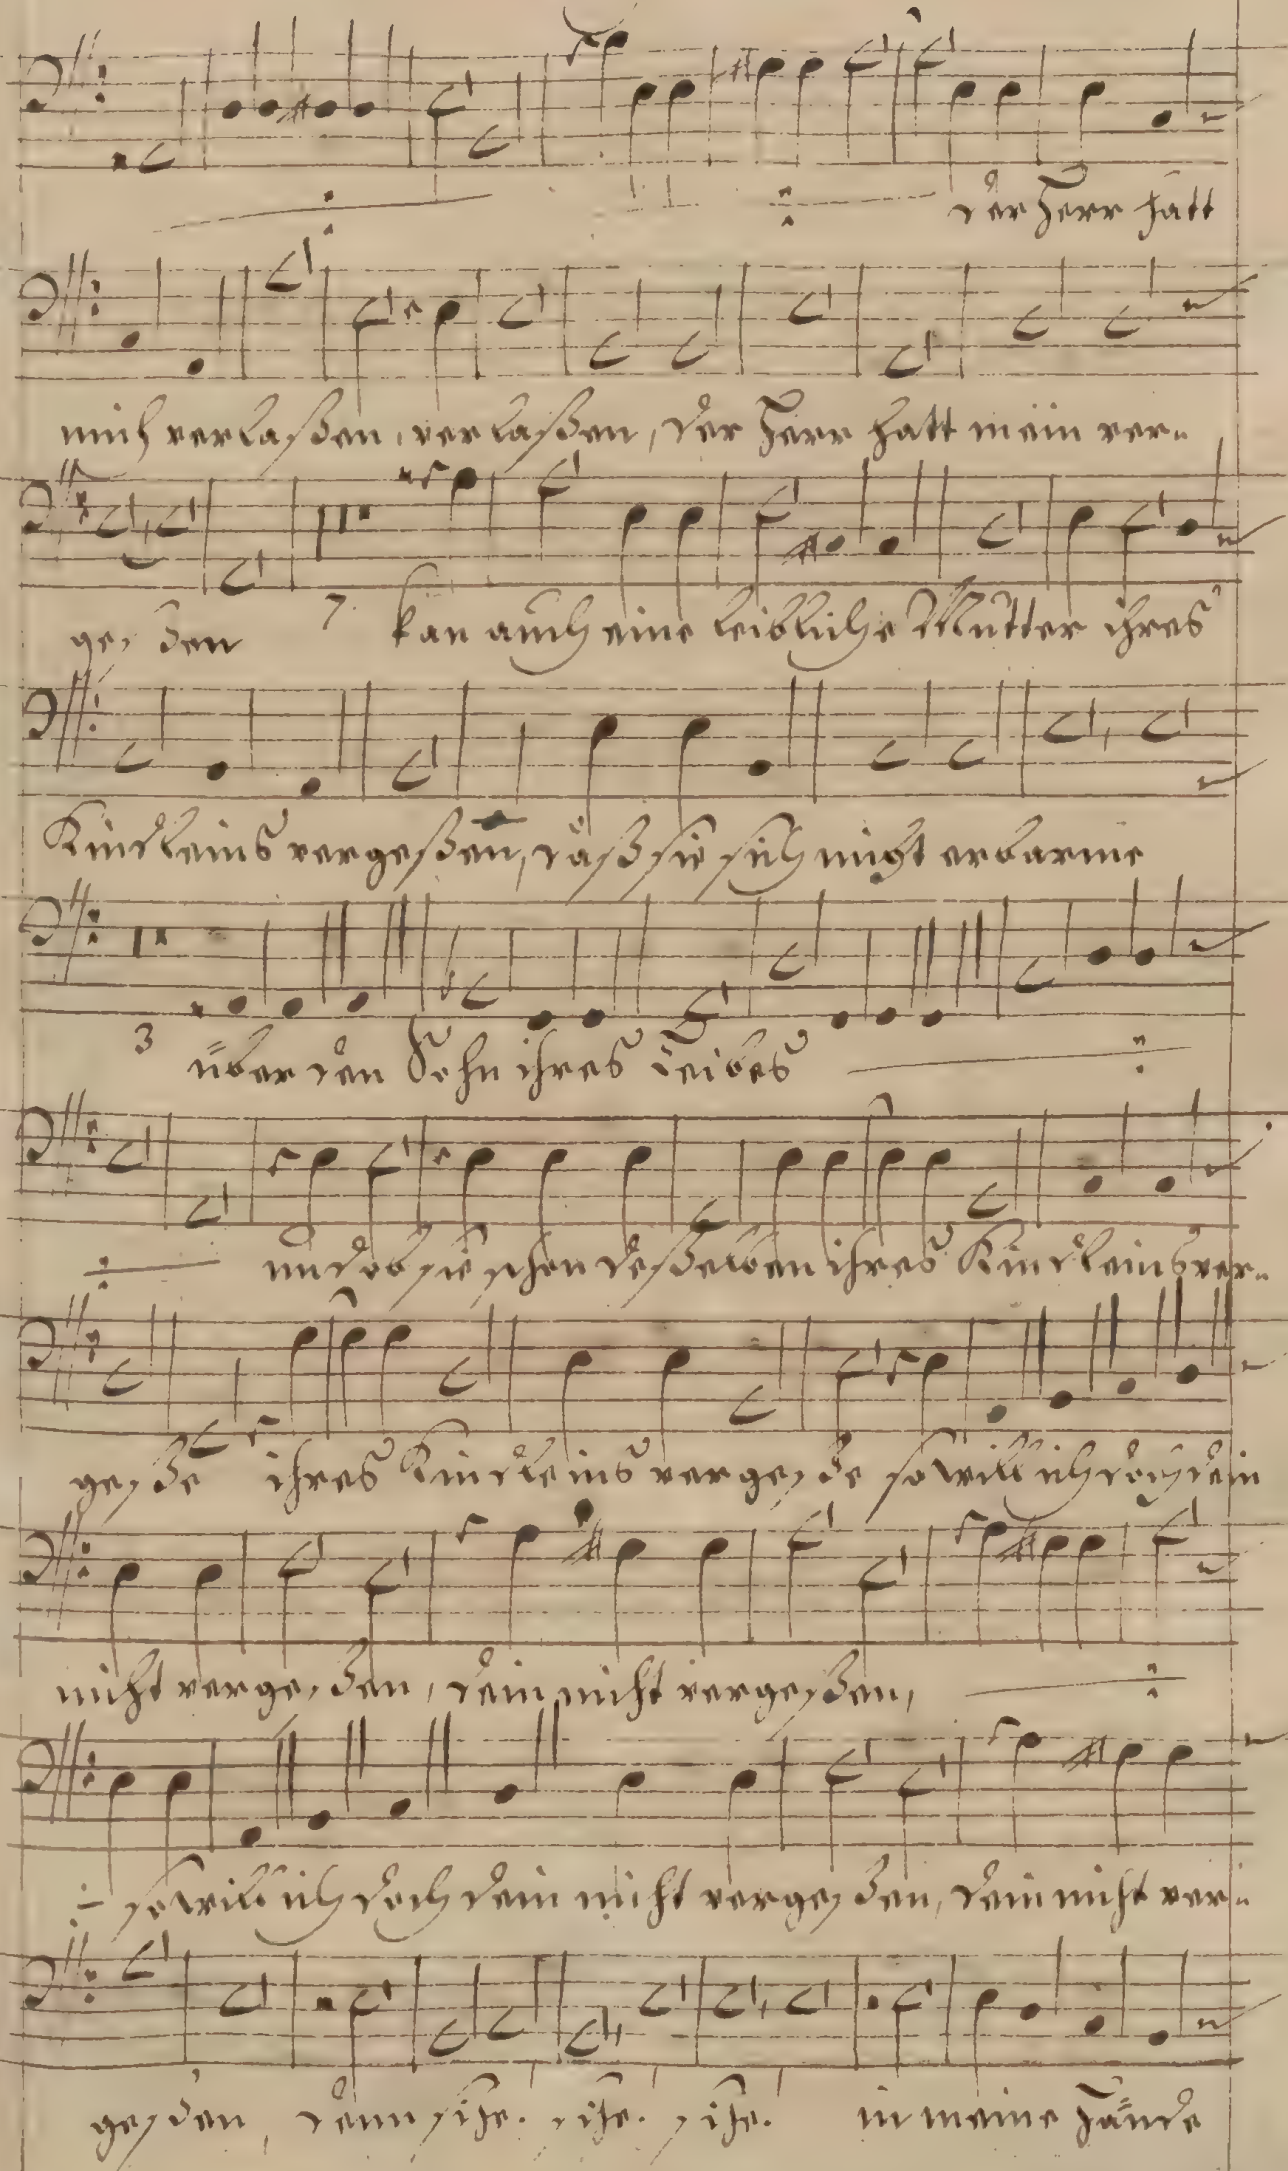 der Herr hatt
mich verlaßen, verlaßen, der Herr hatt mein ver-
geßen 7. kan auch eine leibliche Mutter ihres
Kindleins vergeßen, daß sie sich nicht erbarme
3 über den Sohn ihres Leibes
und ob sie schon deßelben ihres Kindleins ver-
geße ihres Kindleins vergeße so will ich doch dein
nicht vergeßen, dein nicht vergeßen,
so will ich doch dein nicht vergeßen, dein nicht ver-
geßen, denn sihe. sihe. sihe. in meine Hände